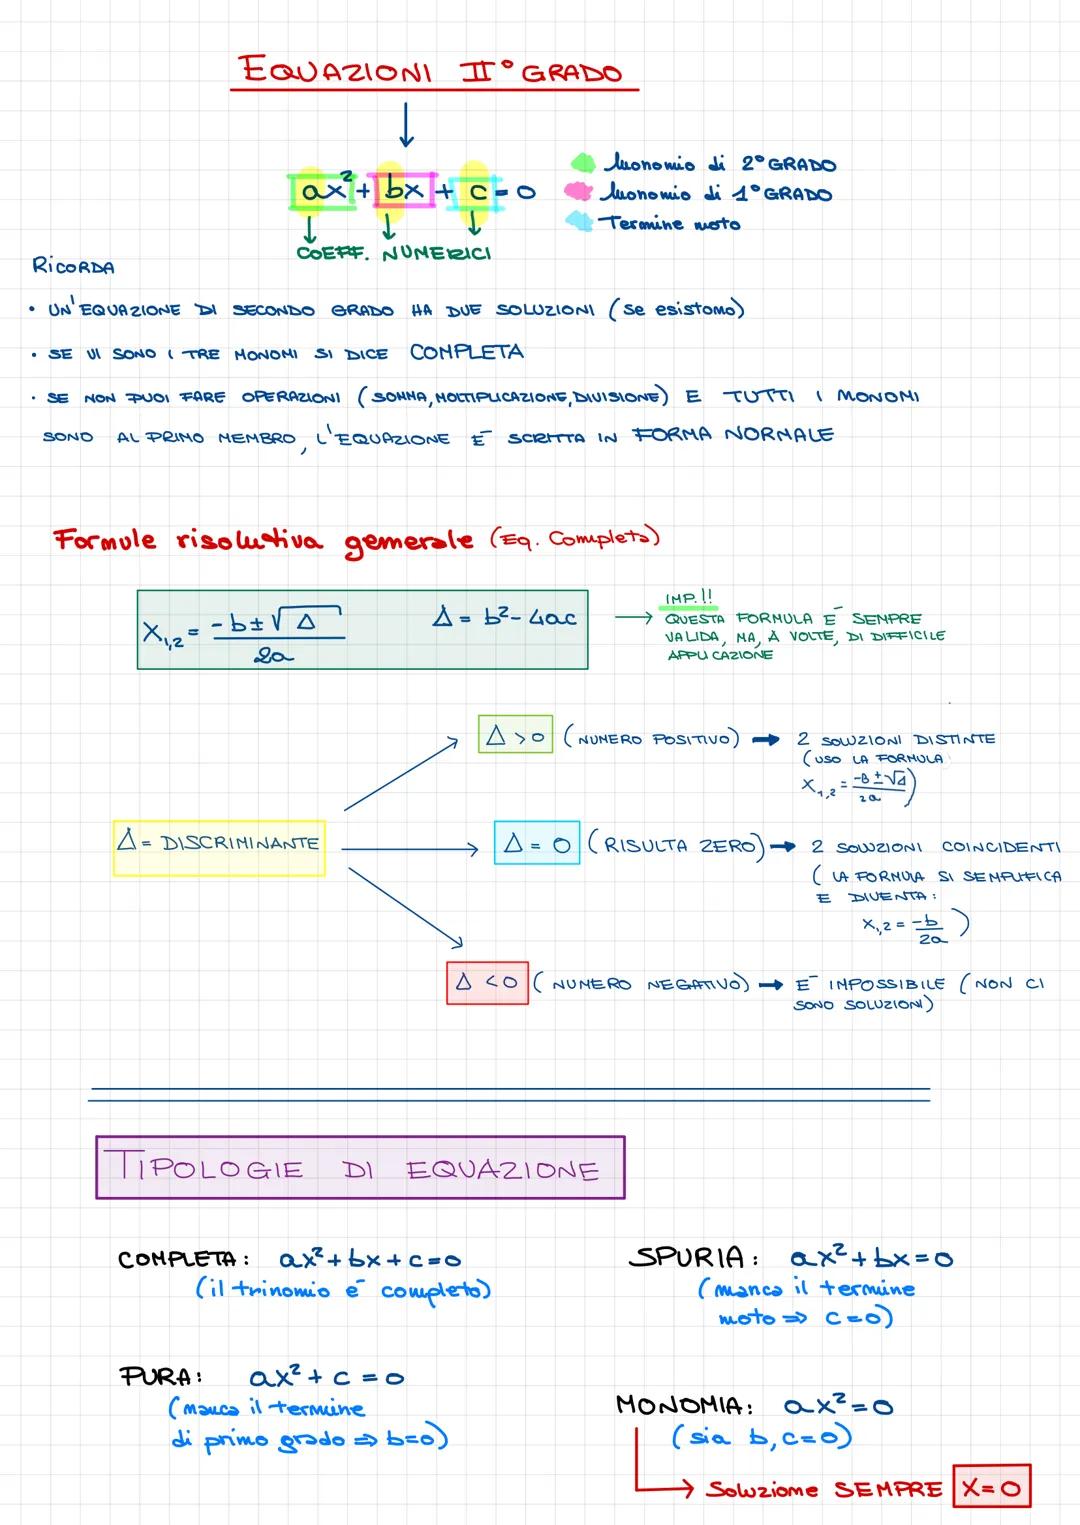 EQUAZIONI II° GRADO
ax² + bx + c = 0
Monomio di 2° GRADO
Monomio di 1° GRADO
Termine noto
COEFF. NUMERICI
RICORDA
• UN'EQUAZIONE DI SECONDO GRADO HA DUE SOLUZIONI (se esistono)
• SE VI SONO I TRE MONOMI SI DICE COMPLETA
• SE NON PUOI FARE OPERAZIONI (SOMMA, MOLTIPLICAZIONE, DIVISIONE) E TUTTI I MONOMI
SONO AL PRIMO MEMBRO, L'EQUAZIONE È SCRITTA IN FORMA NORMALE
Formule risolutiva generale (Eq. Completa)
X₁,₂ = -b ± √Δ / 2a
Δ = b² - 4ac
IMP.!!
QUESTA FORMULA È SEMPRE
VALIDA, MA, A VOLTE, DI DIFFICILE
APPLICAZIONE
Δ > 0 (NUMERO POSITIVO) → 2 SOLUZIONI DISTINTE
(USO LA FORMULA
X₁,₂ = -B ± √Δ / 2a)
Δ = DISCRIMINANTE
Δ = 0 (RISULTA ZERO) → 2 SOLUZIONI COINCIDENTI
(LA FORMULA SI SEMPLIFICA
E DIVENTA:
X₁,₂ = -b / 2a)
Δ < 0 (NUMERO NEGATIVO) → È IMPOSSIBILE (NON CI
SONO SOLUZIONI)
TIPOLOGIE DI EQUAZIONE
COMPLETA: ax² + bx + c = 0
(il trinomio è completo)
SPURIA: ax² + bx = 0
(manca il termine
noto ⇒ c = 0)
PURA: ax² + c = 0
(manca il termine
di primo grado ⇒ b = 0)
MONOMIA: ax² = 0
(sia b, c = 0)
→ Soluzione SEMPRE X = 0